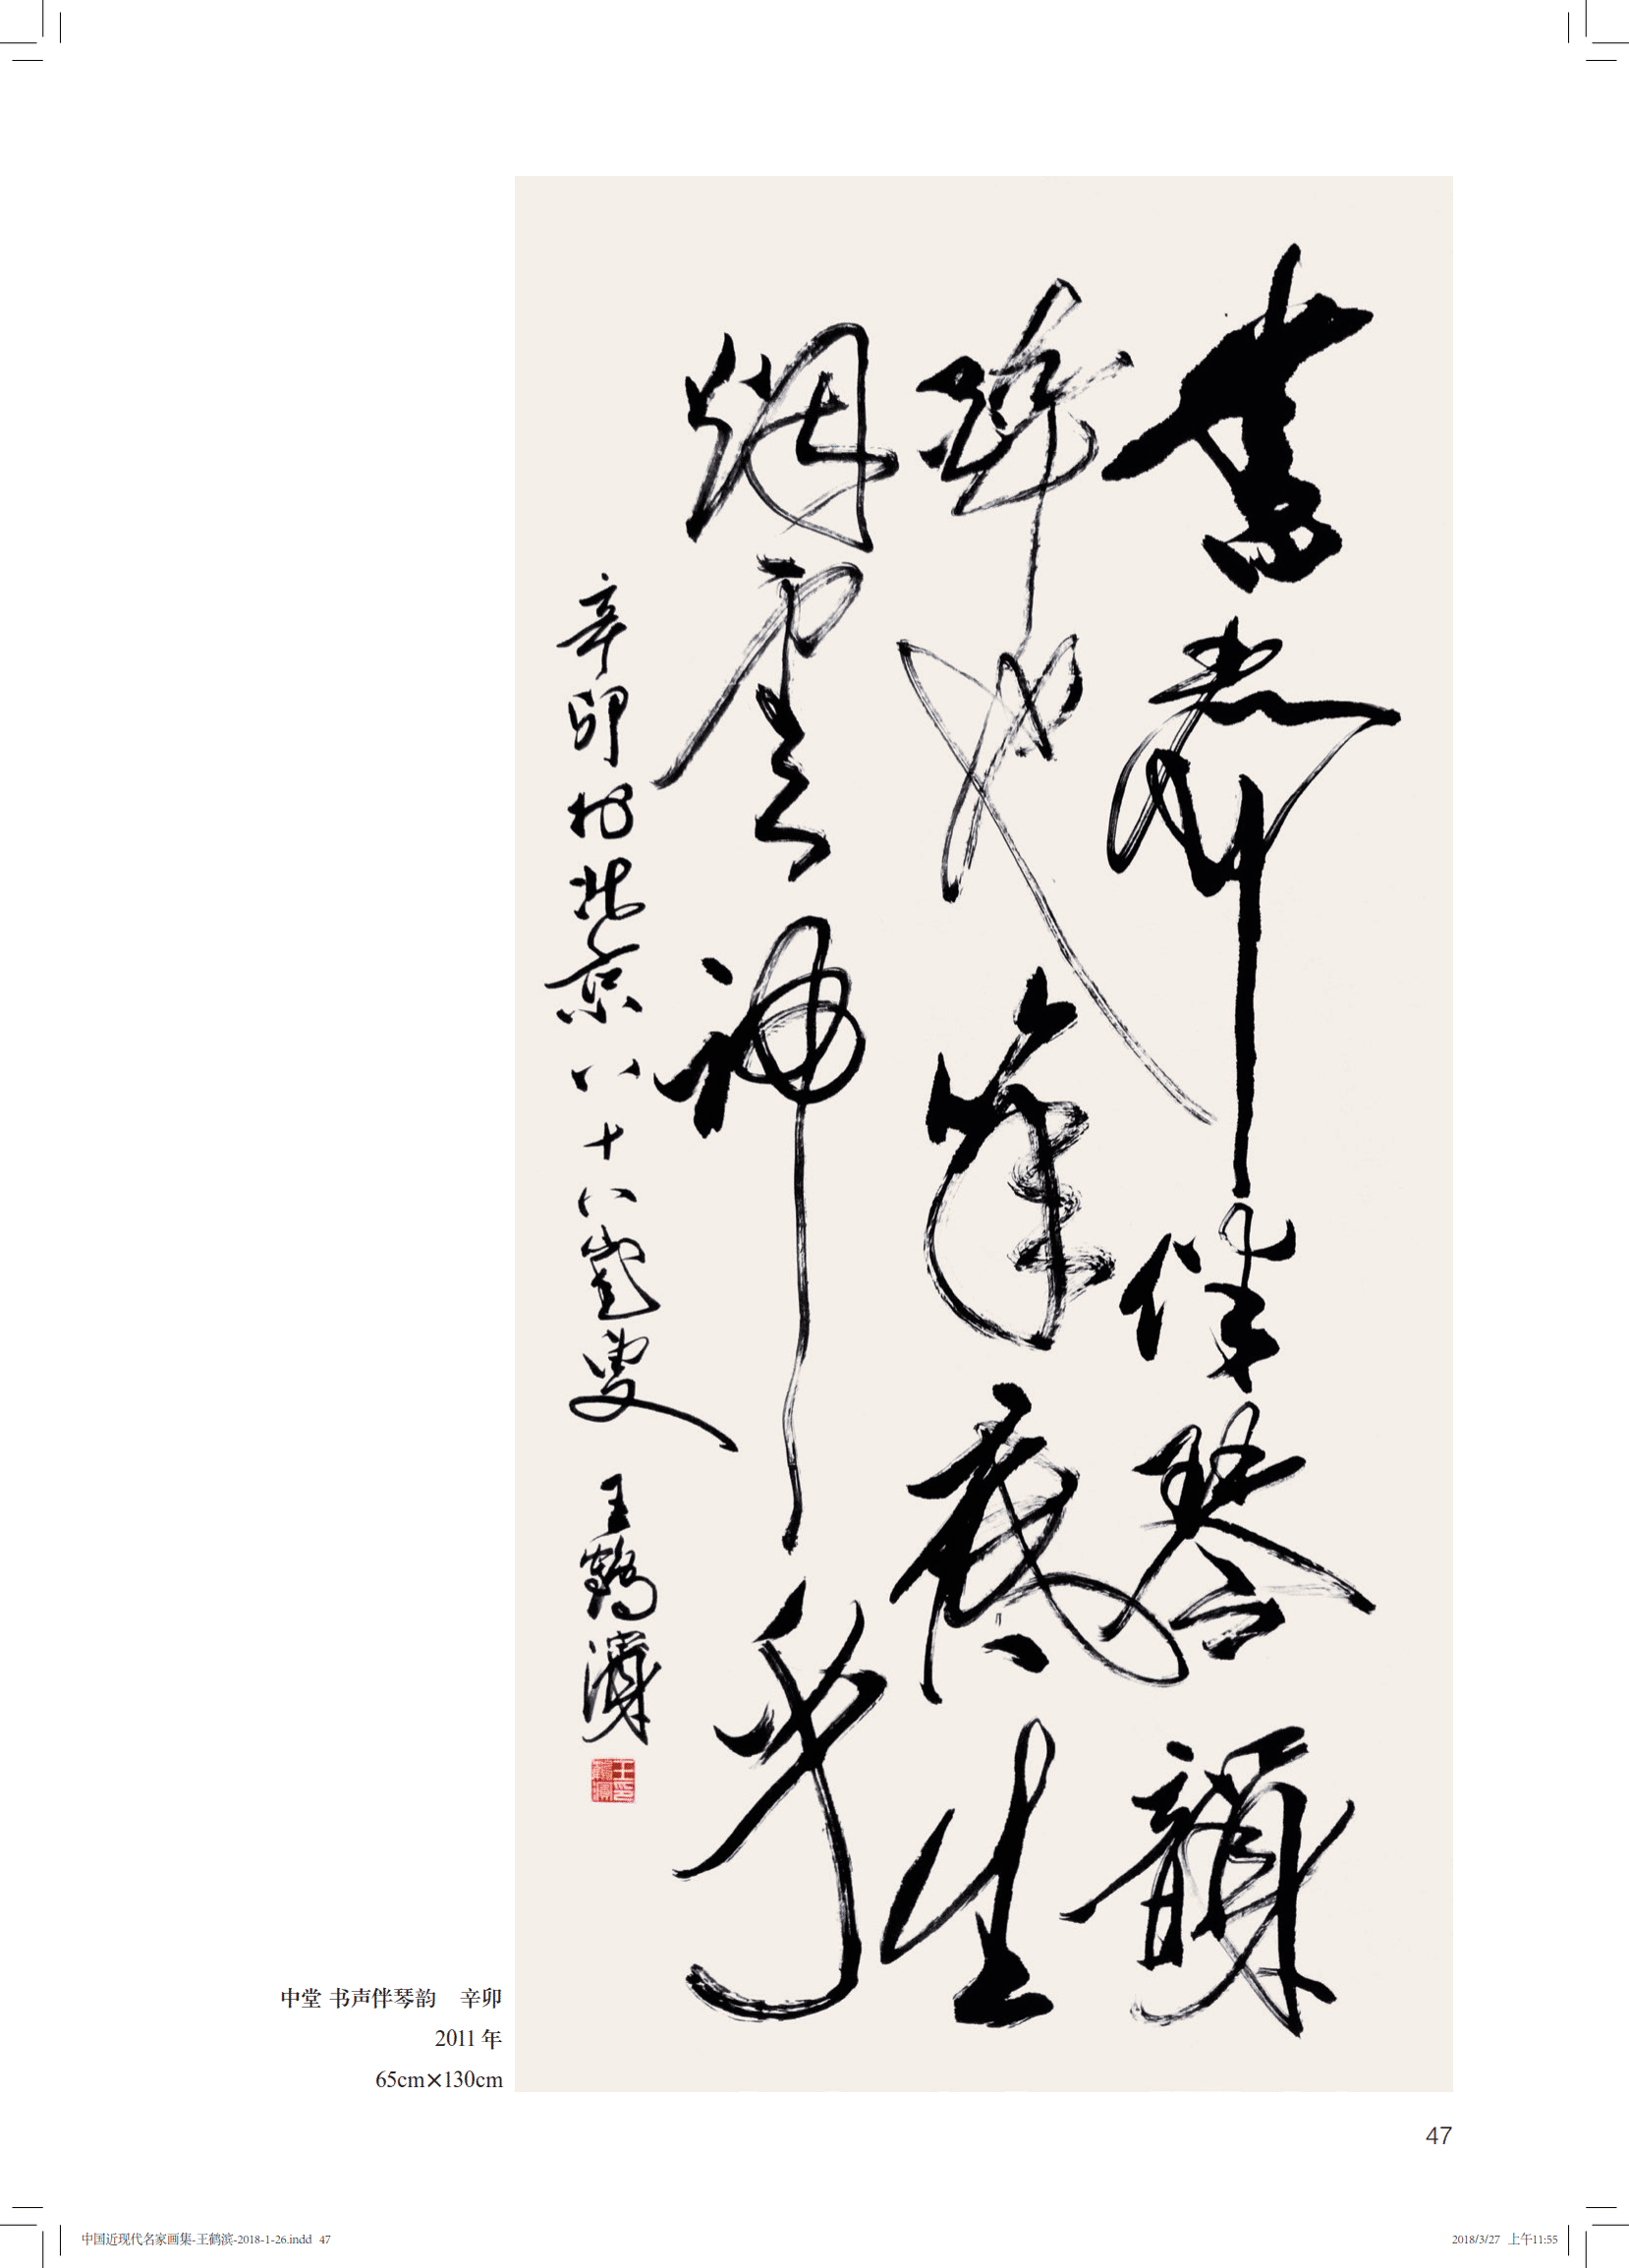 書聲伴琴韻
夜生
烟雲神
辛卯於北京八十八歲叟 王鶴濱
中堂 书声伴琴韵 辛卯
2011 年
65cm×130cm
47
中国近现代名家画集-王鹤滨-2018-1-26.indd 47
2018/3/27 上午11:55